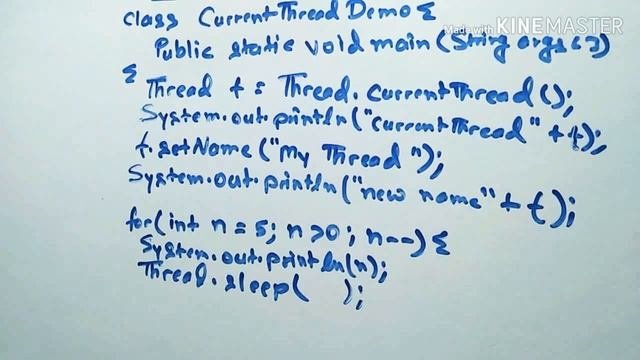 Made with KINEMASTER
class CurrentThread Demo {
Public static void main (String args[])
{
Thread t = Thread.currentThread();
System.out.println("currentThread" + t);
t.setName("My Thread");
System.out.println("new name" + t);
for(int n = 5; n>0; n--) {
System.out.println(n);
Thread.sleep( );